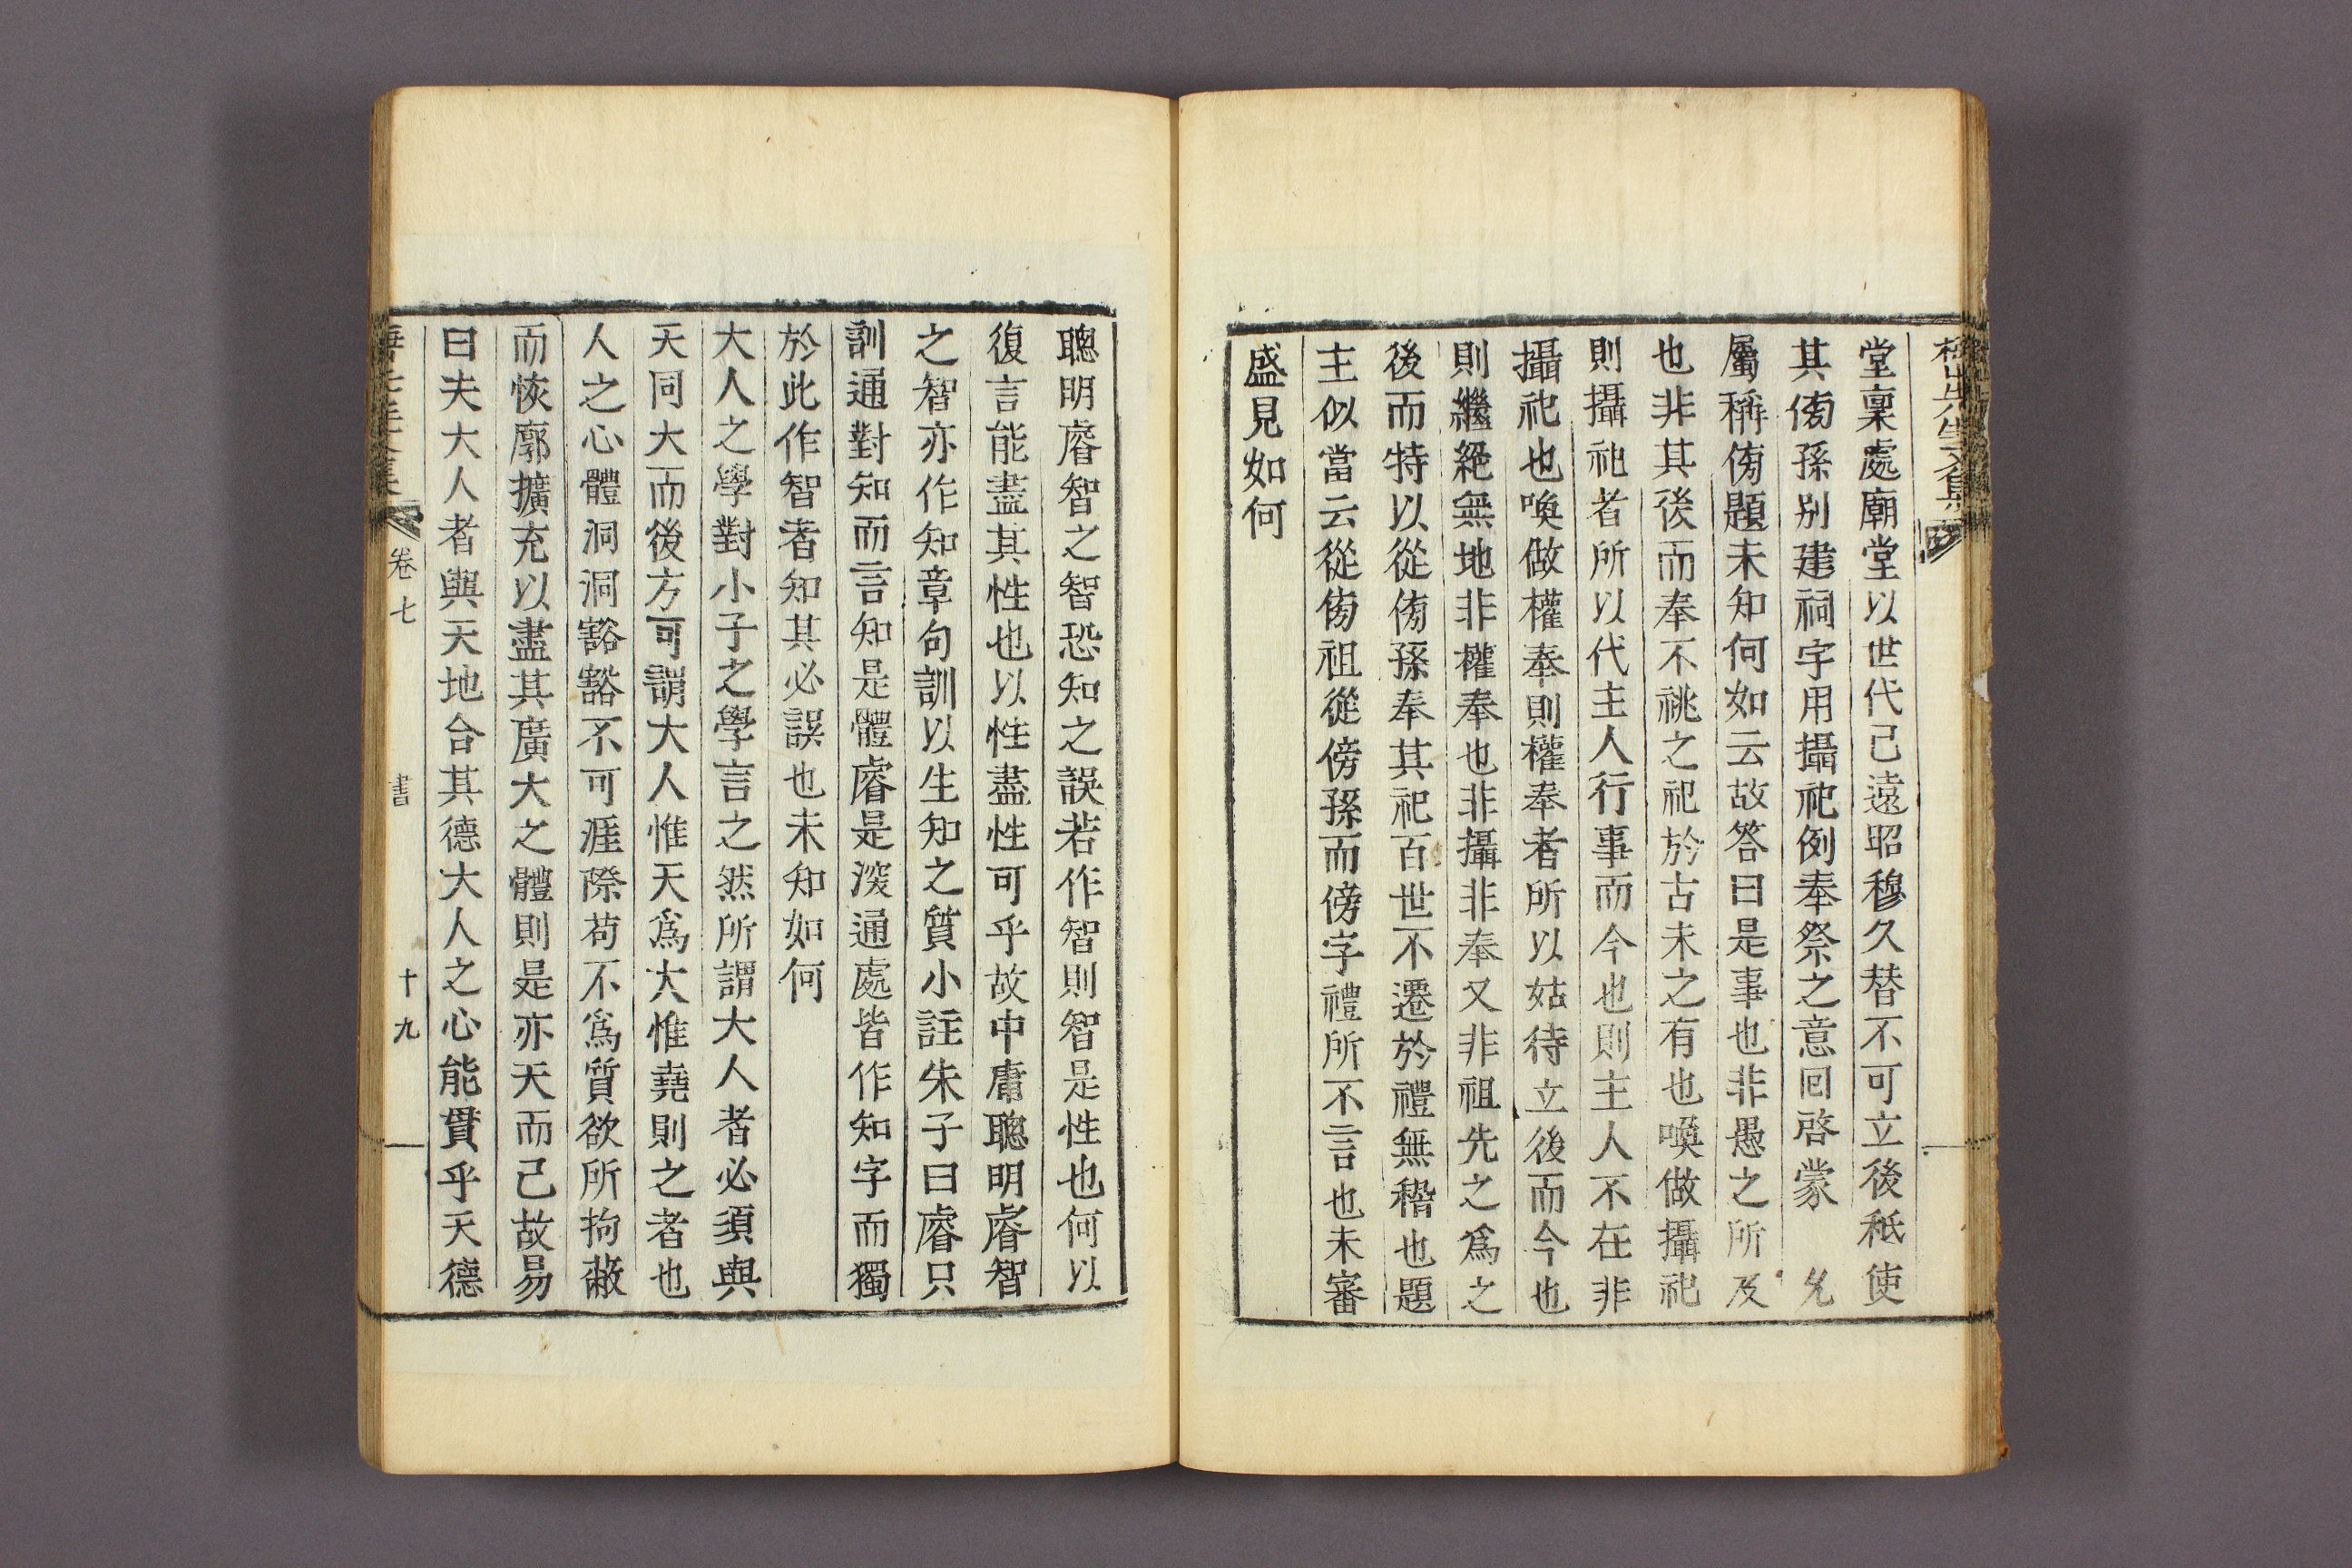 堂稟處廟堂以世代已遠昭穆久替不可立後秖使
其傍孫别建祠宇用攝祀例奉祭之意回啓蒙 允
屬稱傍題未知何如云故答曰是事也非愚之所及
也非其後而奉不祧之祀於古未之有也喚做攝祀
則攝祀者所以代主人行事而今也則主人不在非
攝祀也喚做權奉則權奉者所以姑待立後而今也
則繼絶無地非權奉也非攝非奉又非祖先之爲之
後而特以從傍孫奉其祀百世不遷於禮無稽也題
主似當云從傍祖從傍孫而傍字禮所不言也未審
盛見如何
聰明睿智之智恐知之誤若作智則智是性也何以
復言能盡其性也以性盡性可乎故中庸聰明睿智
之智亦作知章句訓以生知之質小註朱子曰睿只
訓通對知而言知是體睿是深通處皆作知字而獨
於此作智者知其必誤也未知如何
大人之學對小子之學言之然所謂大人者必須與
天同大而後方可謂大人惟天爲大惟堯則之者也
人之心體洞洞豁豁不可涯際苟不爲質欲所拘蔽
而恢廓擴充以盡其廣大之體則是亦天而已故易
曰夫大人者與天地合其德大人之心能貫乎天德
卷七 書 十九